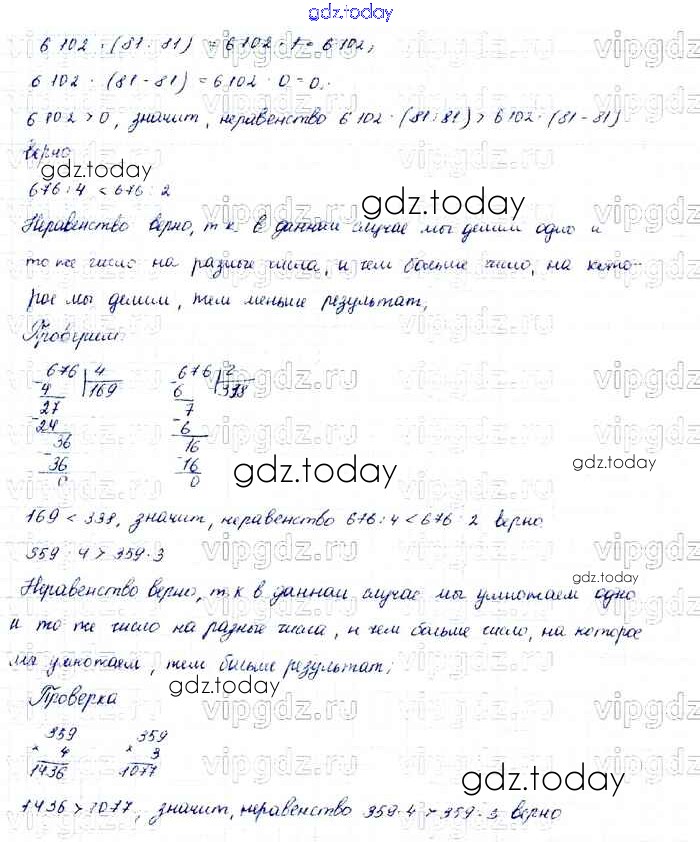 gdz.today
6 102 · (81 : 81) = 6 102 · 1 = 6 102;
6 102 · (81 - 81) = 6 102 · 0 = 0;
6 102 > 0, значит, неравенство 6 102 · (81 : 81) > 6 102 · (81 - 81)
верно
gdz.today
676 : 4 < 676 : 2
gdz.today
Неравенство верно, т. к. в данном случае мы делим одно и
то же число на разные числа, и чем больше число, на кото-
рое мы делим, тем меньше результат;
Проверим:
676 | 4 676 | 2
- 4 169 - 6 338
27 7
- 24 - 6
36 16
- 36 - 16
0 0
gdz.today
gdz.today
169 < 338, значит, неравенство 676 : 4 < 676 : 2 верно
359 · 4 > 359 · 3
gdz.today
Неравенство верно, т. к. в данном случае мы умножаем одно
и то же число на разные числа, и чем больше число, на которое
мы умножаем, тем больше результат;
gdz.today
Проверка
359 359
× 4 × 3
1436 1077
gdz.today
1436 > 1077, значит, неравенство 359 · 4 > 359 · 3 верно
vipgdz.ru